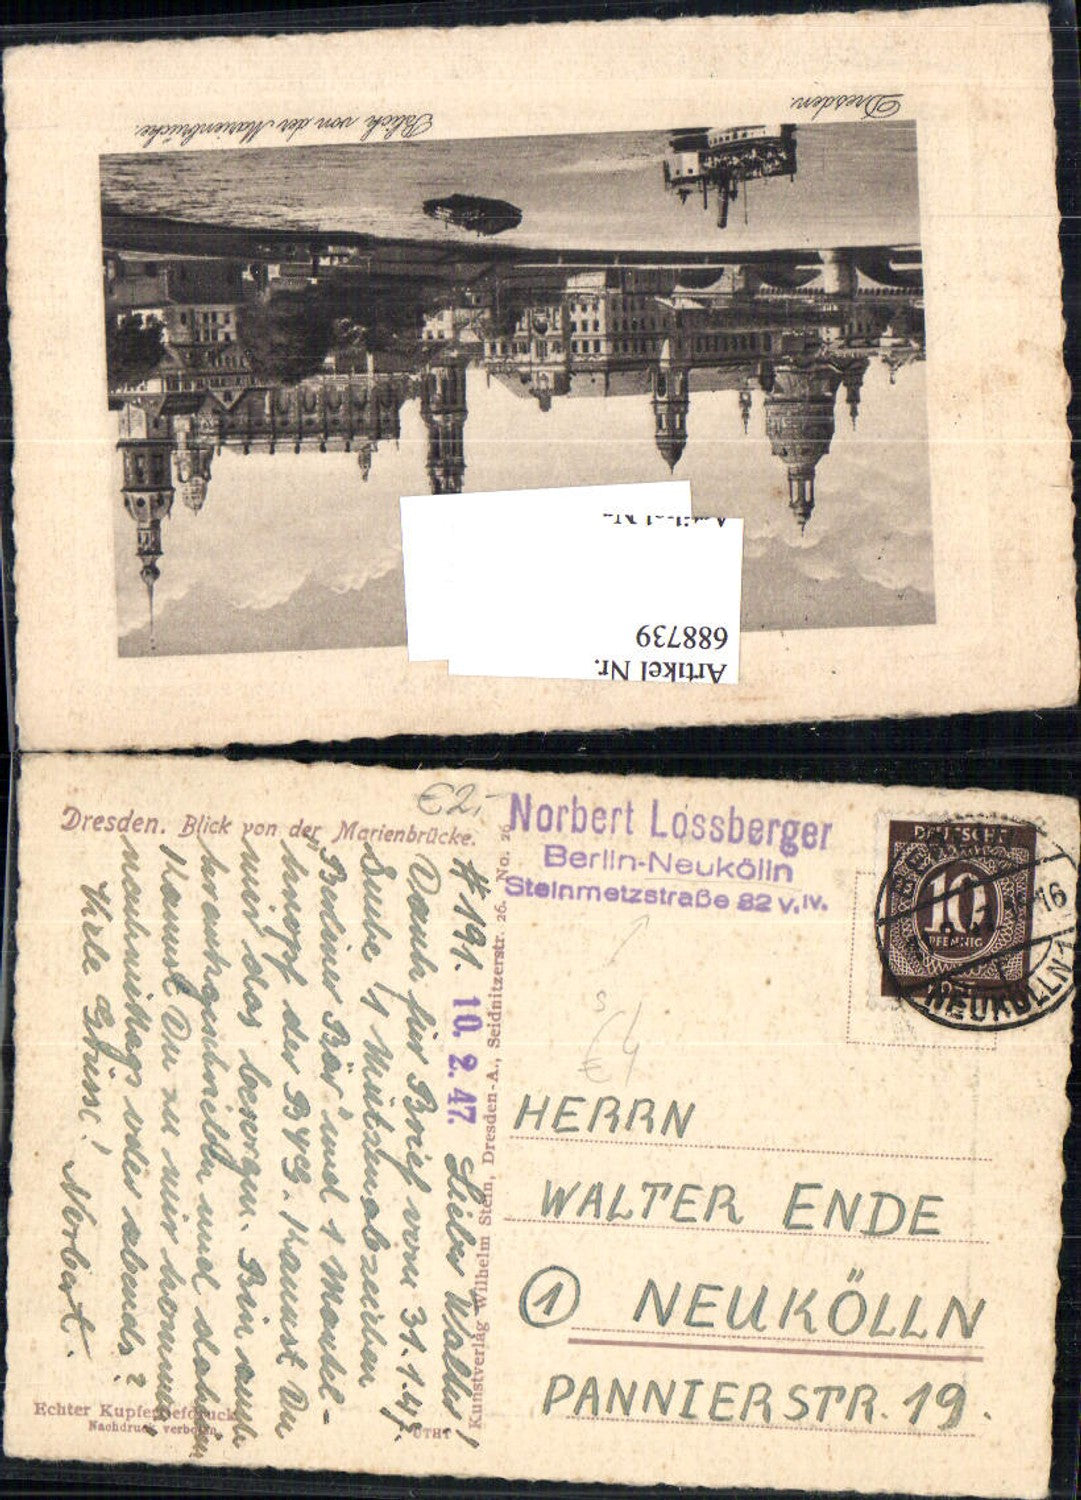 Dresden.
Blick von der Marienbrücke.
Artikel Nr.
Artikel Nr.
688739
Dresden. Blick von der Marienbrücke.
€2,-
Norbert Lossberger
Berlin-Neukölln
Steinmetzstraße 82 v. IV.
DEUTSCHE
10
PFENNIG
16
NEUKÖLLN 1
S
€ 4
#191. 10. 2. 47. Lieber Walter!
Dank für Brief vom 31.1.47.
Suche 1 Mützenabzeichen
"Berliner Bär" und 1 Mantel-
knopf der BVG. Kannst Du
mir das besorgen. Bin auch
krankgeschrieben und daheim
Kannst Du zu mir kommen
nachmittags oder abends?
Viele Grüsse!
Norbert.
Kunstverlag Wilhelm Stein, Dresden-A., Seidnitzerstr. 26. No. 26
HERRN
WALTER ENDE
1 NEUKÖLLN
PANNIERSTR. 19.
Echter Kupfertiefdruck
Nachdruck verboten.